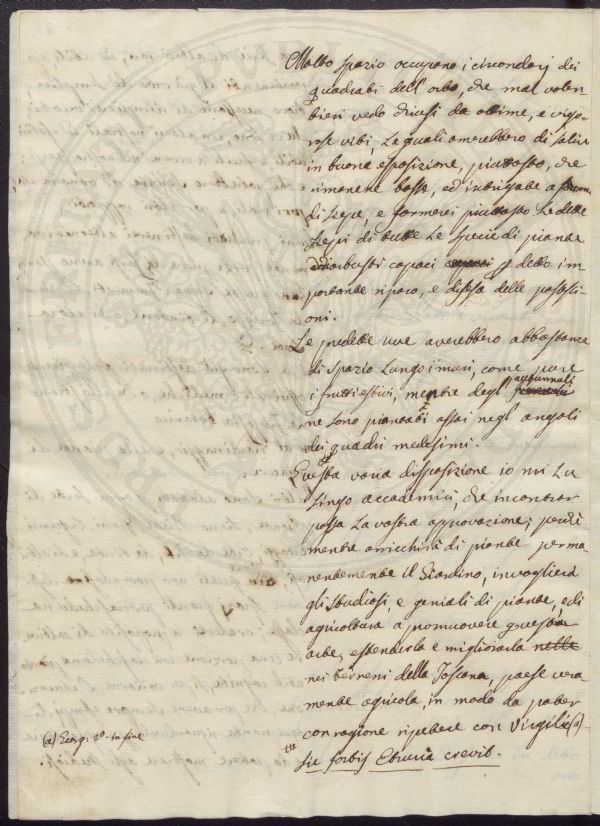 Molto spazio occupano i circondarj dei
quadrati dell'orto, che mal volen-
tieri vedo vestiti da ottime, e vigo-
rose viti, le quali amerebbero di salire
in buona esposizione, piuttosto, che
rimanere basse, ed intrigate a forma
di siepe, e formerei piuttosto le dette
siepi di tutte le specie di piante
ed arbusti capaci p detto im-
portante riparo, e difesa delle possessi-
oni.
Le predette uve averebbero abbastanza
di spazio lungo i muri, come pure
i frutti estivi, mentre degl' autunnali
ne sono piantati assai negl' angoli
dei quadri medesimi.
Questa varia disposizione io mi lu
singo accademici, che incontrar
possa la vostra approvazione; perchè
mentre arricchirà di piante perma
nentemente il Giardino, invoglierà
gli studiosi, e geniali di piante, e di
agricoltura a promuovere quest'
arte, estenderla e migliorarla nelle
nei terreni della Toscana, paese vera
mente agricola, in modo da poter
con ragione ripetere con Virgilio (a).
sic fortis Etruria crevit.
(a) Georg: 2°. in fine